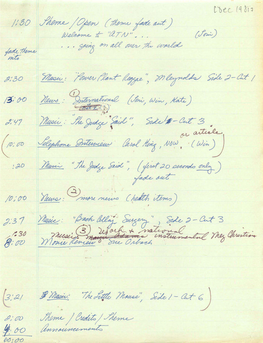 [Dec 1981?]
1:30 Theme / Open (theme fade out)
Welcome to "ATN"... (Jeri)
... going on all over the world
fade theme
into
2:30 Music: "Power Plant Reggae", M Reynolds Side 2 - Cut 1
13:00 News ① International (Jeri, Win, Kate)
2:47 Music: "The Judge Said", Side - Cut 3
or article
(10:00 Telephone Interview Carol NOW. (Win)
:20 Music: "The Judge Said", (first 20 seconds only)
fade out
10:00 News: ② more news (health items)
2:37 Music: "Back Surgery", Side 2 - Cut 3
③ Work & national
1:30 Music instrumental Meg Christian
8:00 Movie Review:
(3:21 Music: "The Little Mouse", Side 1 - Cut 6)
2:00 Theme / Credits / Theme
4:00 Announcements
60:00